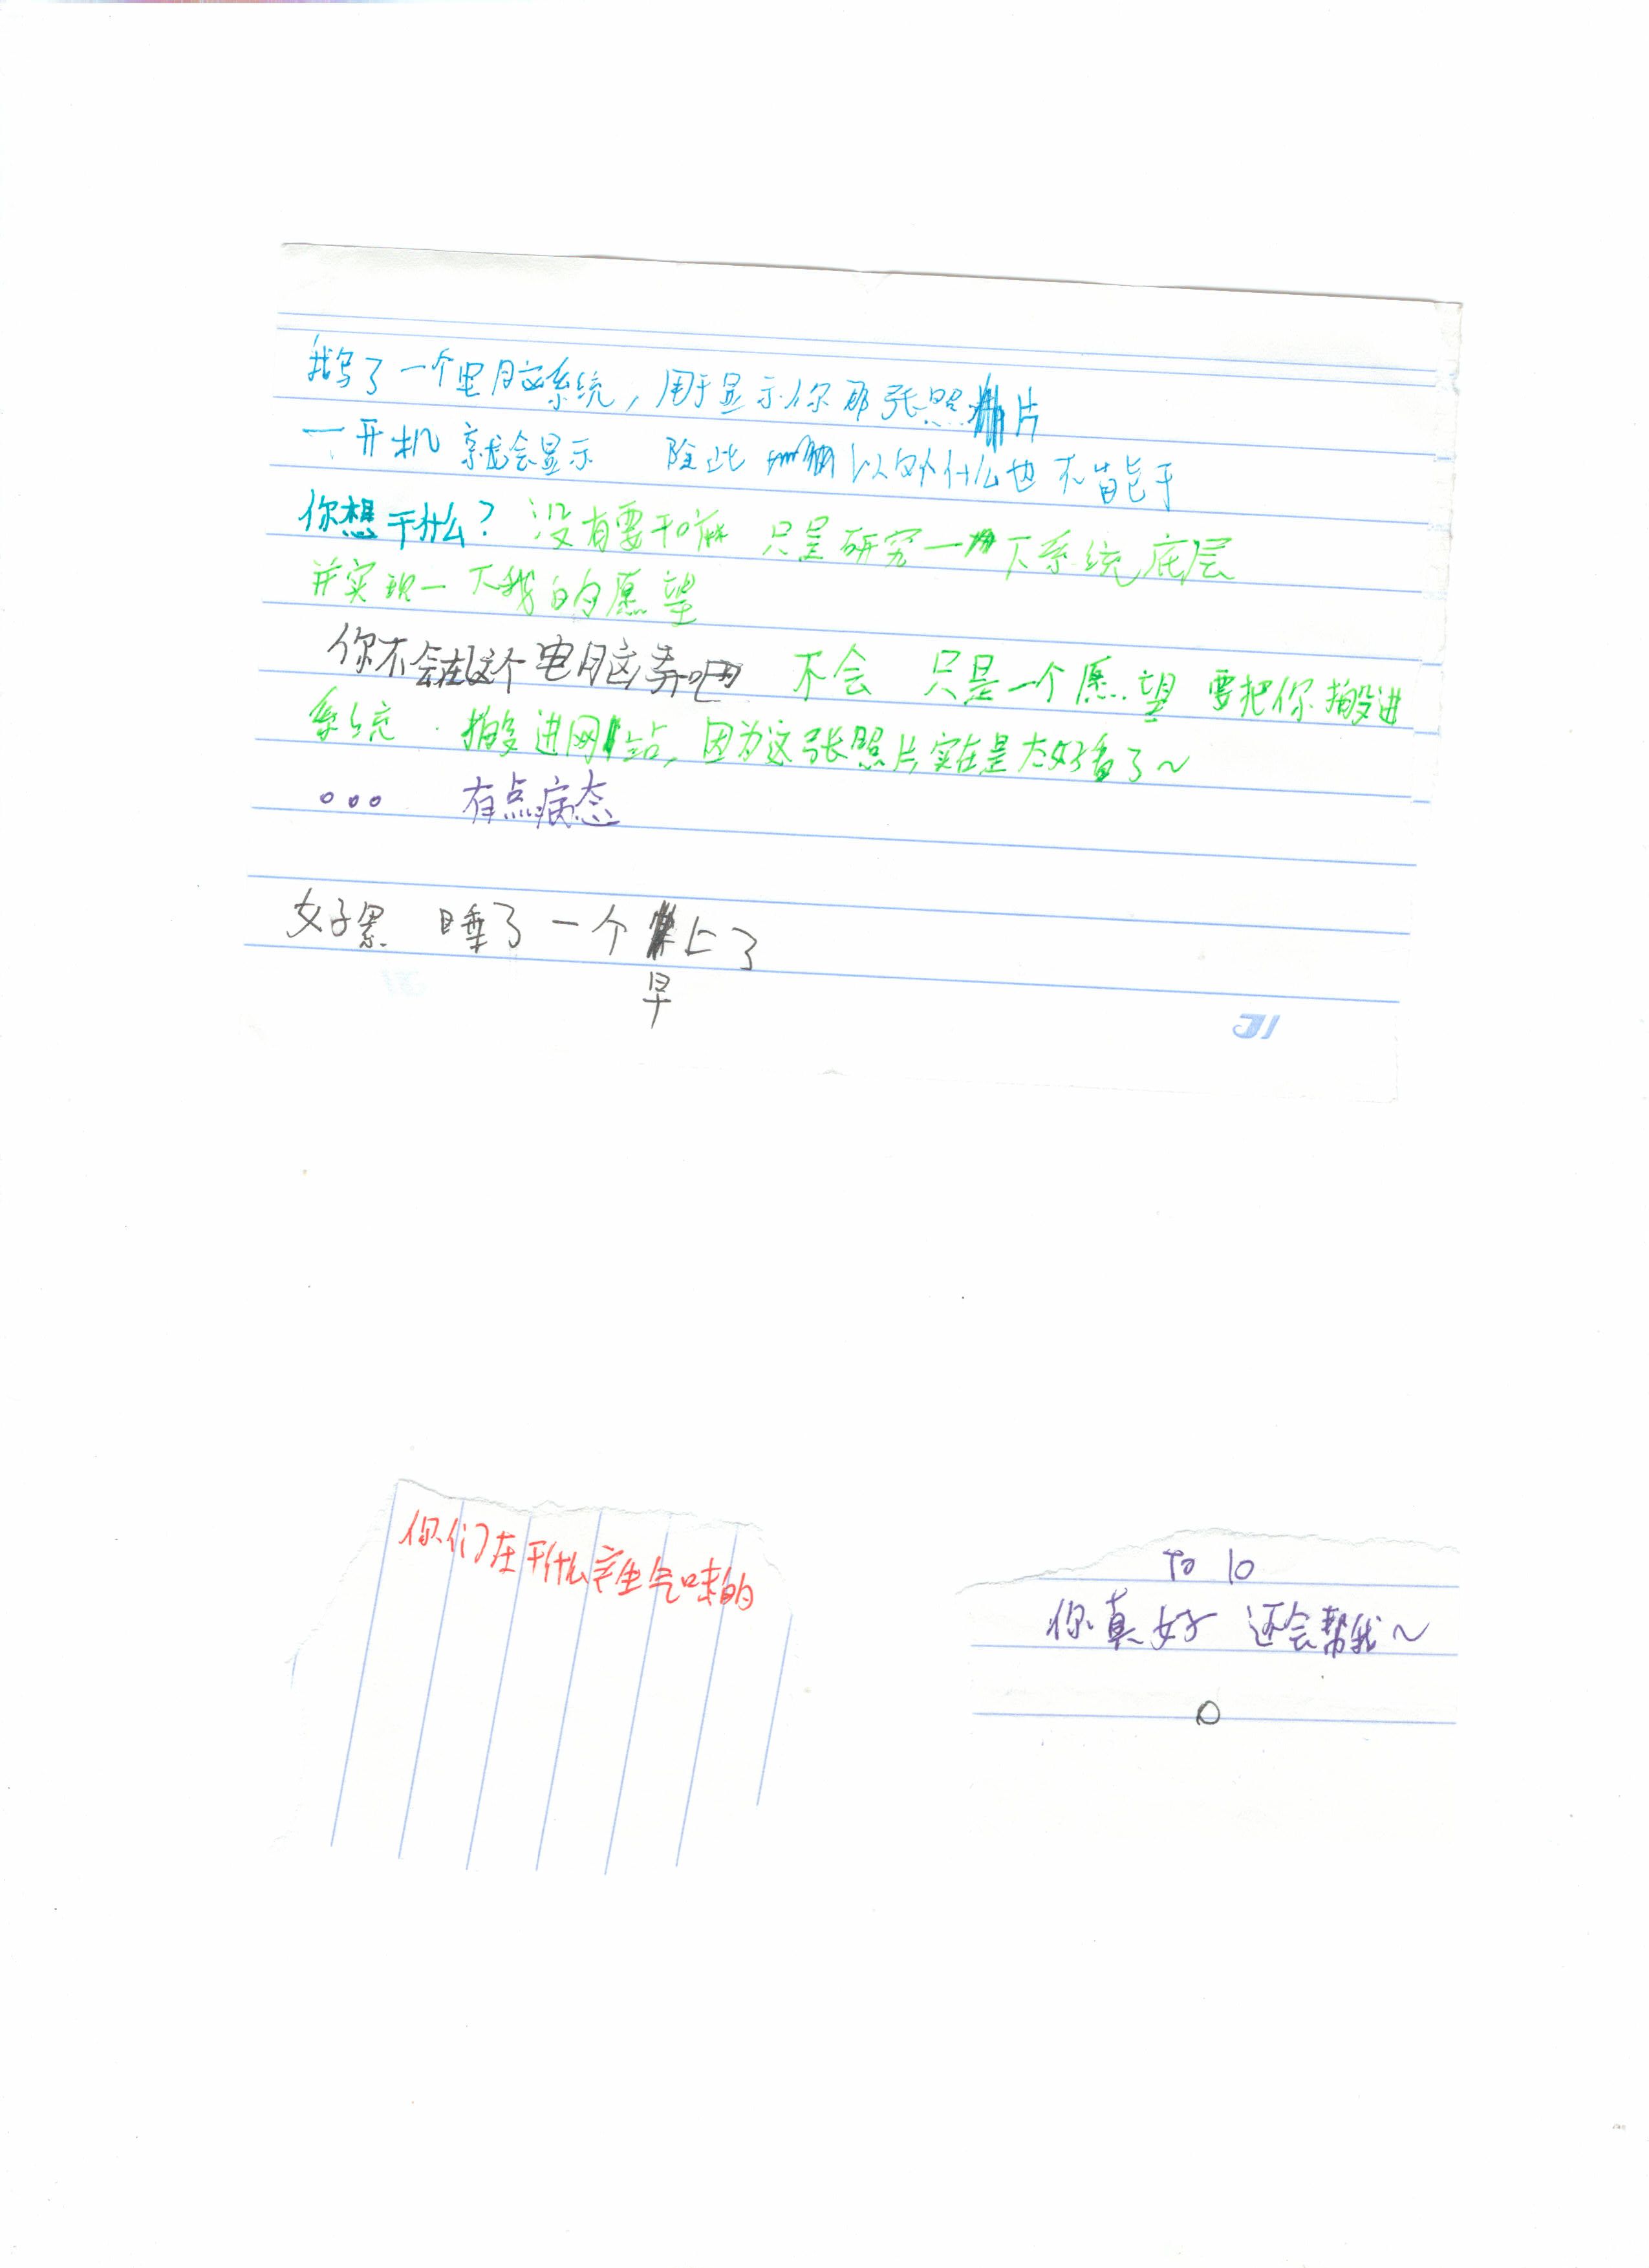 我写了一个电脑系统，用于显示你那张照片
一开机 就会显示 除此以外什么也不能干
你想干什么？ 没有要干嘛 只是研究一下系统底层
并实现一下我的愿望
你不会在这个电脑弄吧 不会 只是一个愿望 要把你搬进
系统．搬进网站，因为这张照片实在是太好看了～
。。。 有点病态
好累 睡了一个早上了
你们在干什么产生气味的
To 10
你真好 还会帮我～